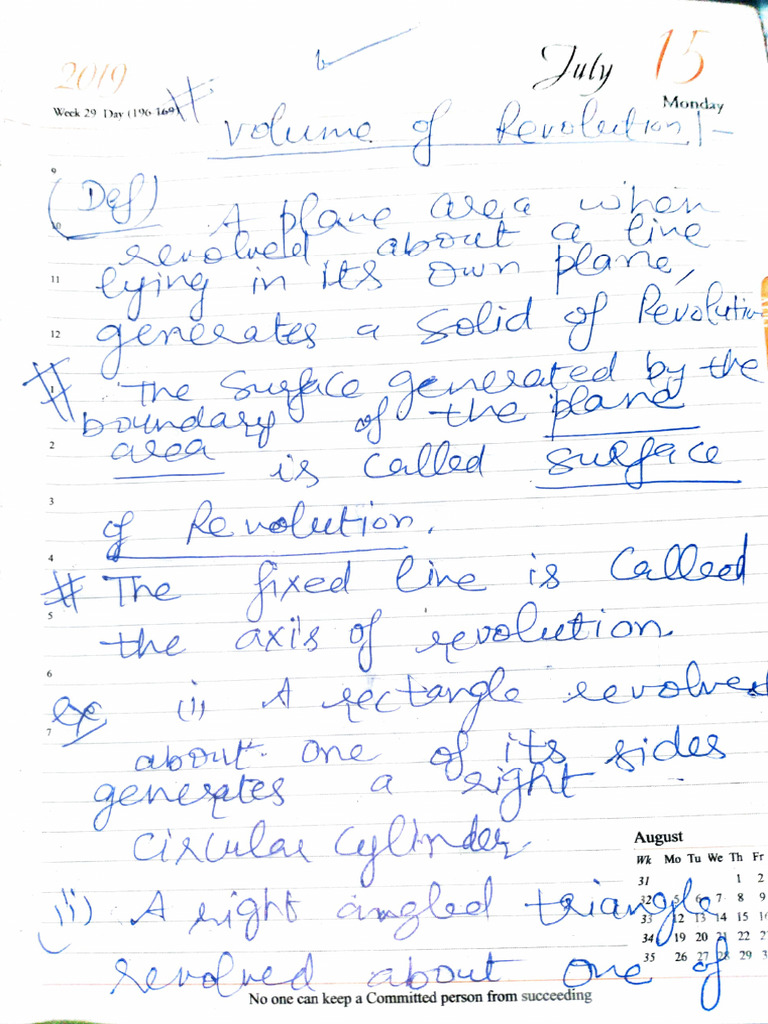 2019
July 15
Week 29 Day (196-169)
Monday
# Volume of Revolution:-
9
(Def) A plane area when
10
revolved about a line
11
lying in its own plane,
12
generates a solid of Revolution
# The surface generated by the
1
boundary of the plane
2
area is called surface
3
of Revolution.
4
# The fixed line is called
5
the axis of revolution.
6
ex (i) A rectangle revolved
7
about one of its sides
generates a right
circular cylinder
August
Wk Mo Tu We Th Fr
31 1 2
(ii) A right angled triangle
32 5 6 7 8 9
33 12 13 14 15 16
34 19 20 21 22
35 26 27 28 29
revolved about one of
No one can keep a Committed person from succeeding